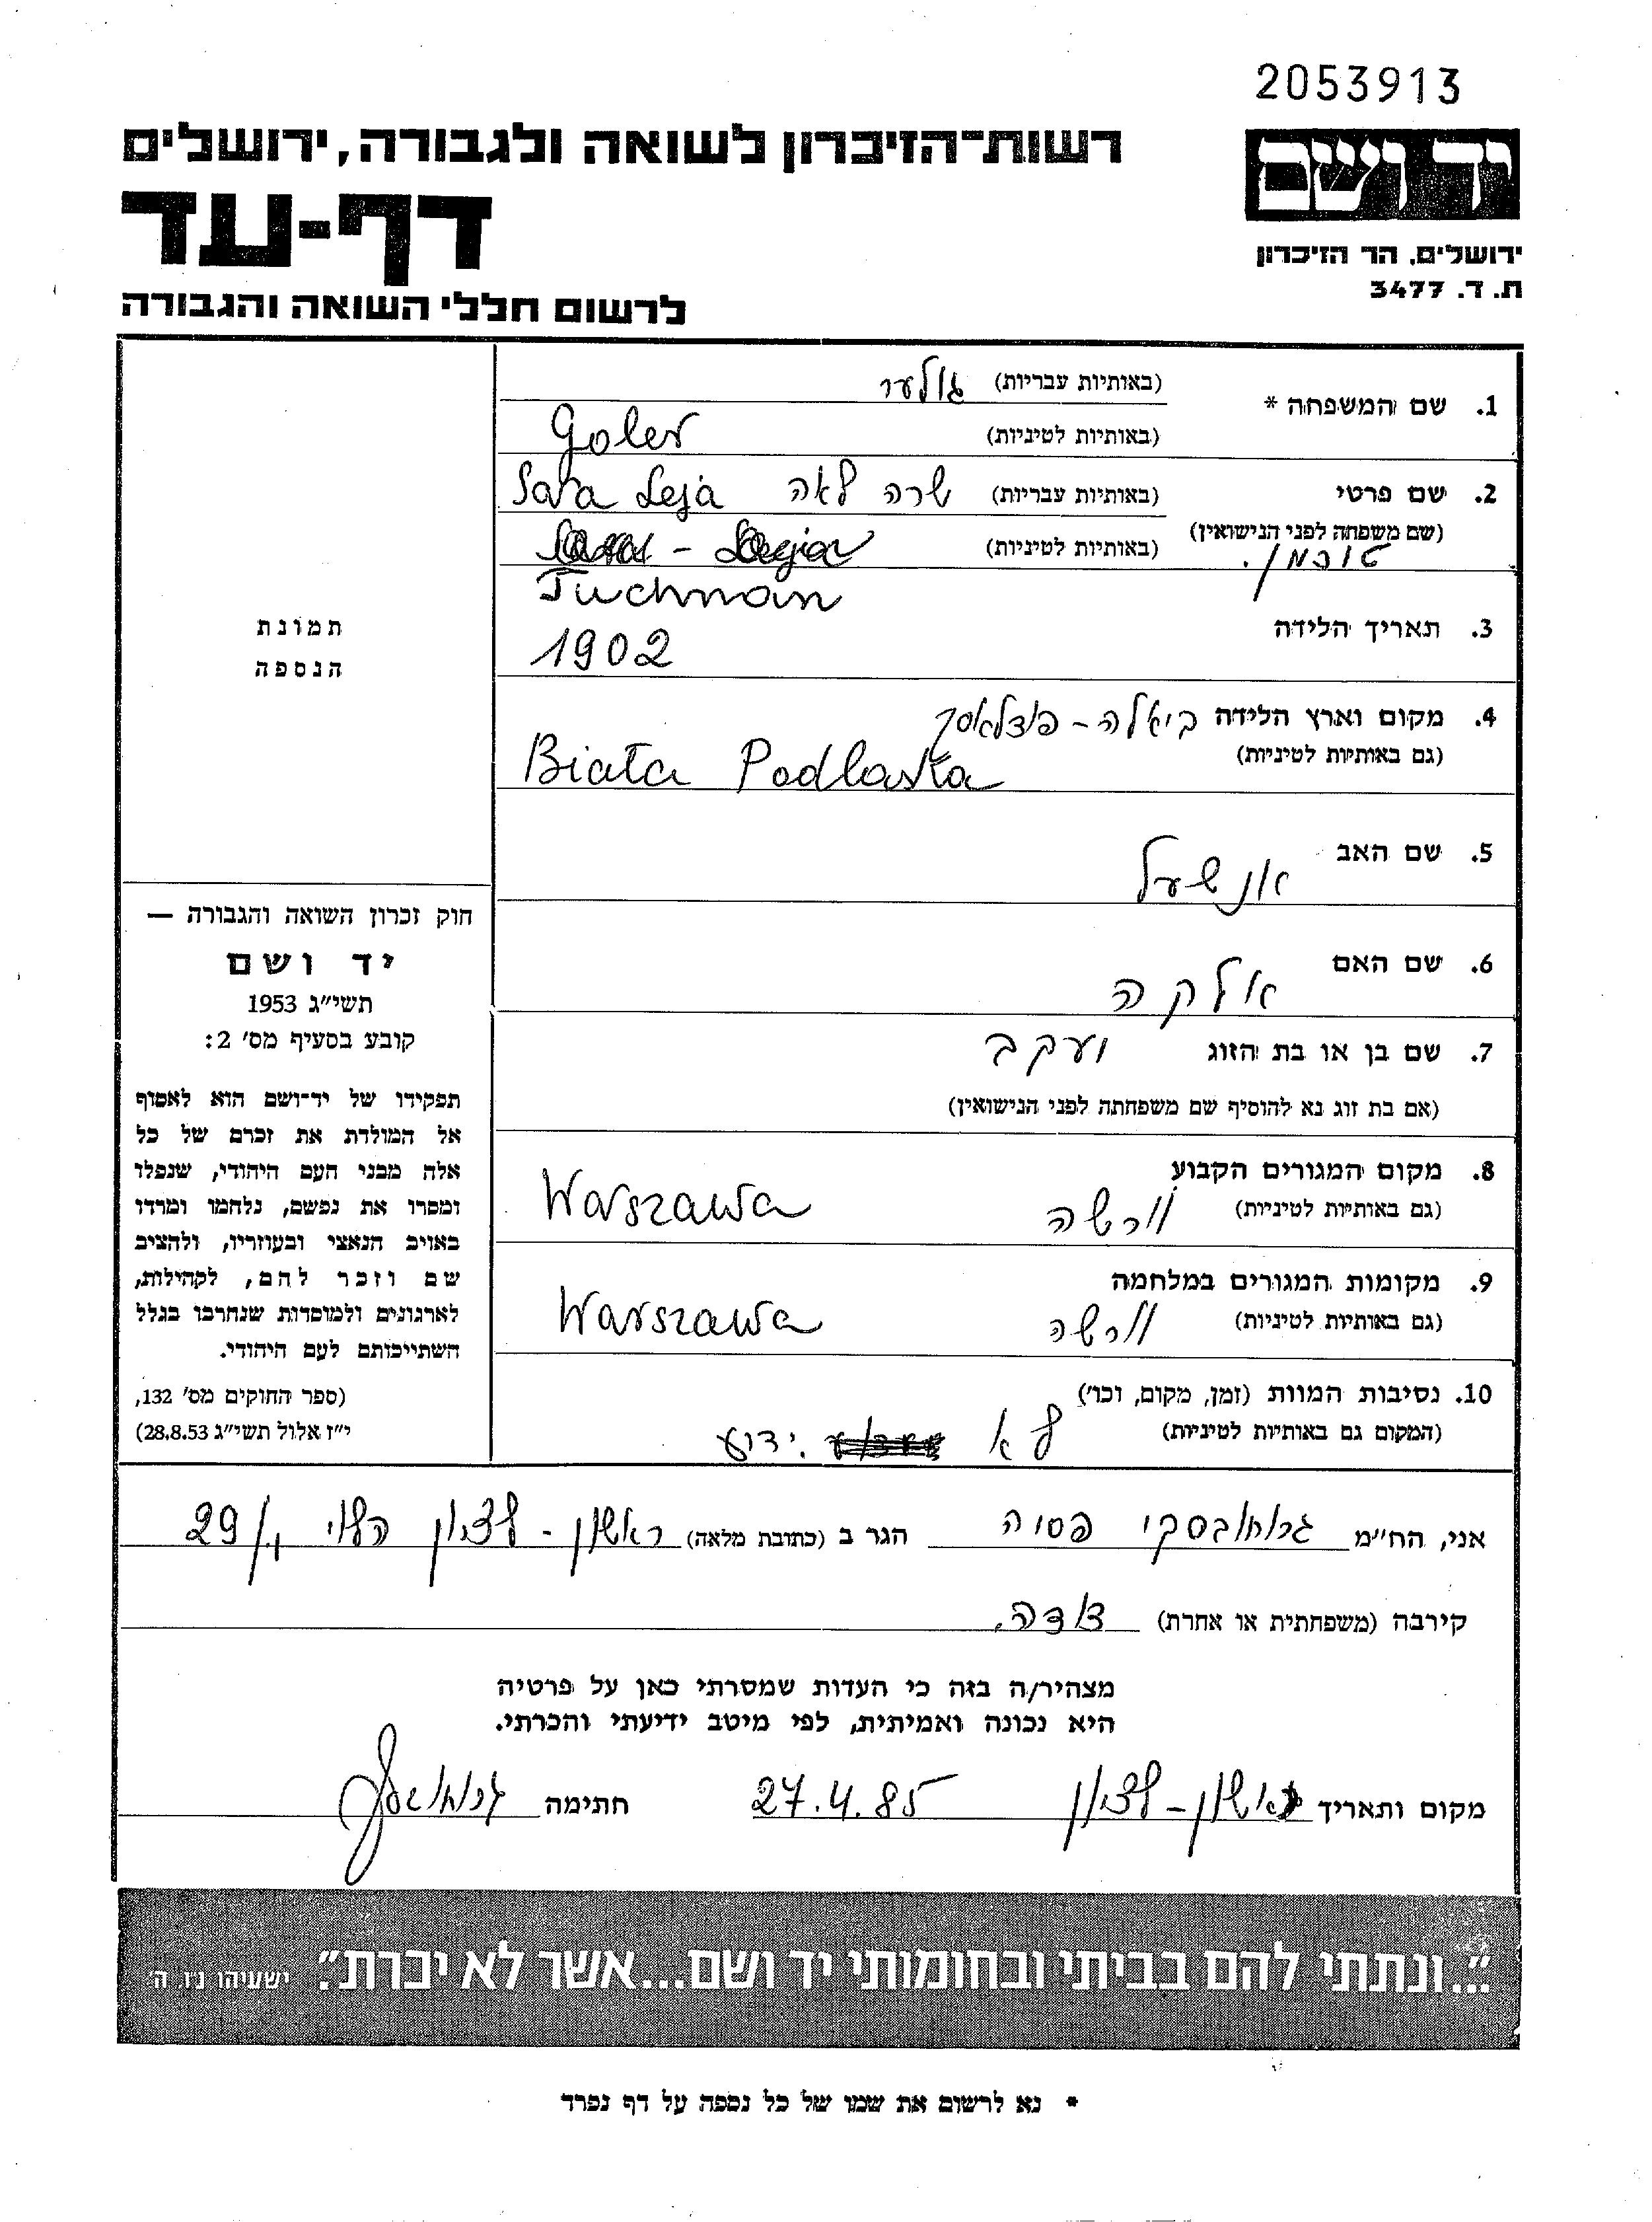 2053913
יד ושם
ירושלים, הר הזיכרון
ת. ד. 3477
רשות־הזיכרון לשואה ולגבורה, ירושלים
דף-עד
לרשום חללי השואה והגבורה
1. שם המשפחה * (באותיות עבריות) גולער
(באותיות לטיניות) Goler
2. שם פרטי (באותיות עבריות) שרה לאה Sara Leja
(שם משפחה לפני הנישואין) (באותיות לטיניות)
טוכמן. Tuchman
3. תאריך הלידה 1902
4. מקום וארץ הלידה ביאלה - פודלאסק
(גם באותיות לטיניות) Biała Podlaska
5. שם האב אנשעל
6. שם האם אלקה
7. שם בן או בת הזוג יעקב
(אם בת זוג נא להוסיף שם משפחתה לפני הנישואין)
8. מקום המגורים הקבוע
(גם באותיות לטיניות) וורשה Warszawa
9. מקומות המגורים במלחמה
(גם באותיות לטיניות) וורשה Warszawa
10. נסיבות המוות (זמן, מקום, וכו')
(המקום גם באותיות לטיניות) לא ידוע
תמונת
הנספה
חוק זכרון השואה והגבורה —
יד ושם
תשי״ג 1953
קובע בסעיף מס' 2:
תפקידו של יד־ושם הוא לאסוף
אל המולדת את זכרם של כל
אלה מבני העם היהודי, שנפלו
ומסרו את נפשם, נלחמו ומרדו
באויב הנאצי ובעוזריו, ולהציב
שם וזכר להם, לקהילות,
לארגונים ולמוסדות שנחרבו בגלל
השתייכותם לעם היהודי.
(ספר החוקים מס' 132,
י״ז אלול תשי״ג 28.8.53)
אני, הח״מ פסיה הגר ב (כתובת מלאה) ראשון - לציון הלוי 29/
קירבה (משפחתית או אחרת) דודה.
מצהיר/ה בזה כי העדות שמסרתי כאן על פרטיה
היא נכונה ואמיתית, לפי מיטב ידיעתי והכרתי.
מקום ותאריך ראשון - לציון 27.4.85 חתימה
"...ונתתי להם בביתי ובחומותי יד ושם...אשר לא יכרת". ישעיהו נ״ו, ה'
* נא לרשום את שמו של כל נספה על דף נפרד